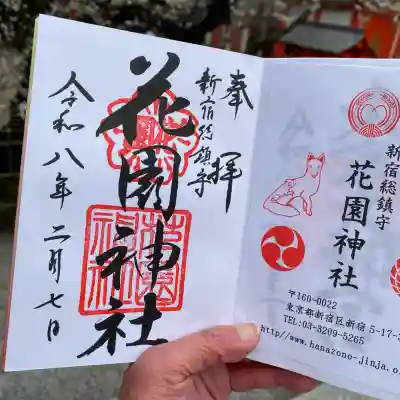 奉拝
新宿総鎮守
花園神社
令和八年二月七日
新宿総鎮守
花園神社
〒160-0022
東京都新宿区新宿5-17-3
TEL:03-3209-5265
http//www.hanazono-jinja.o